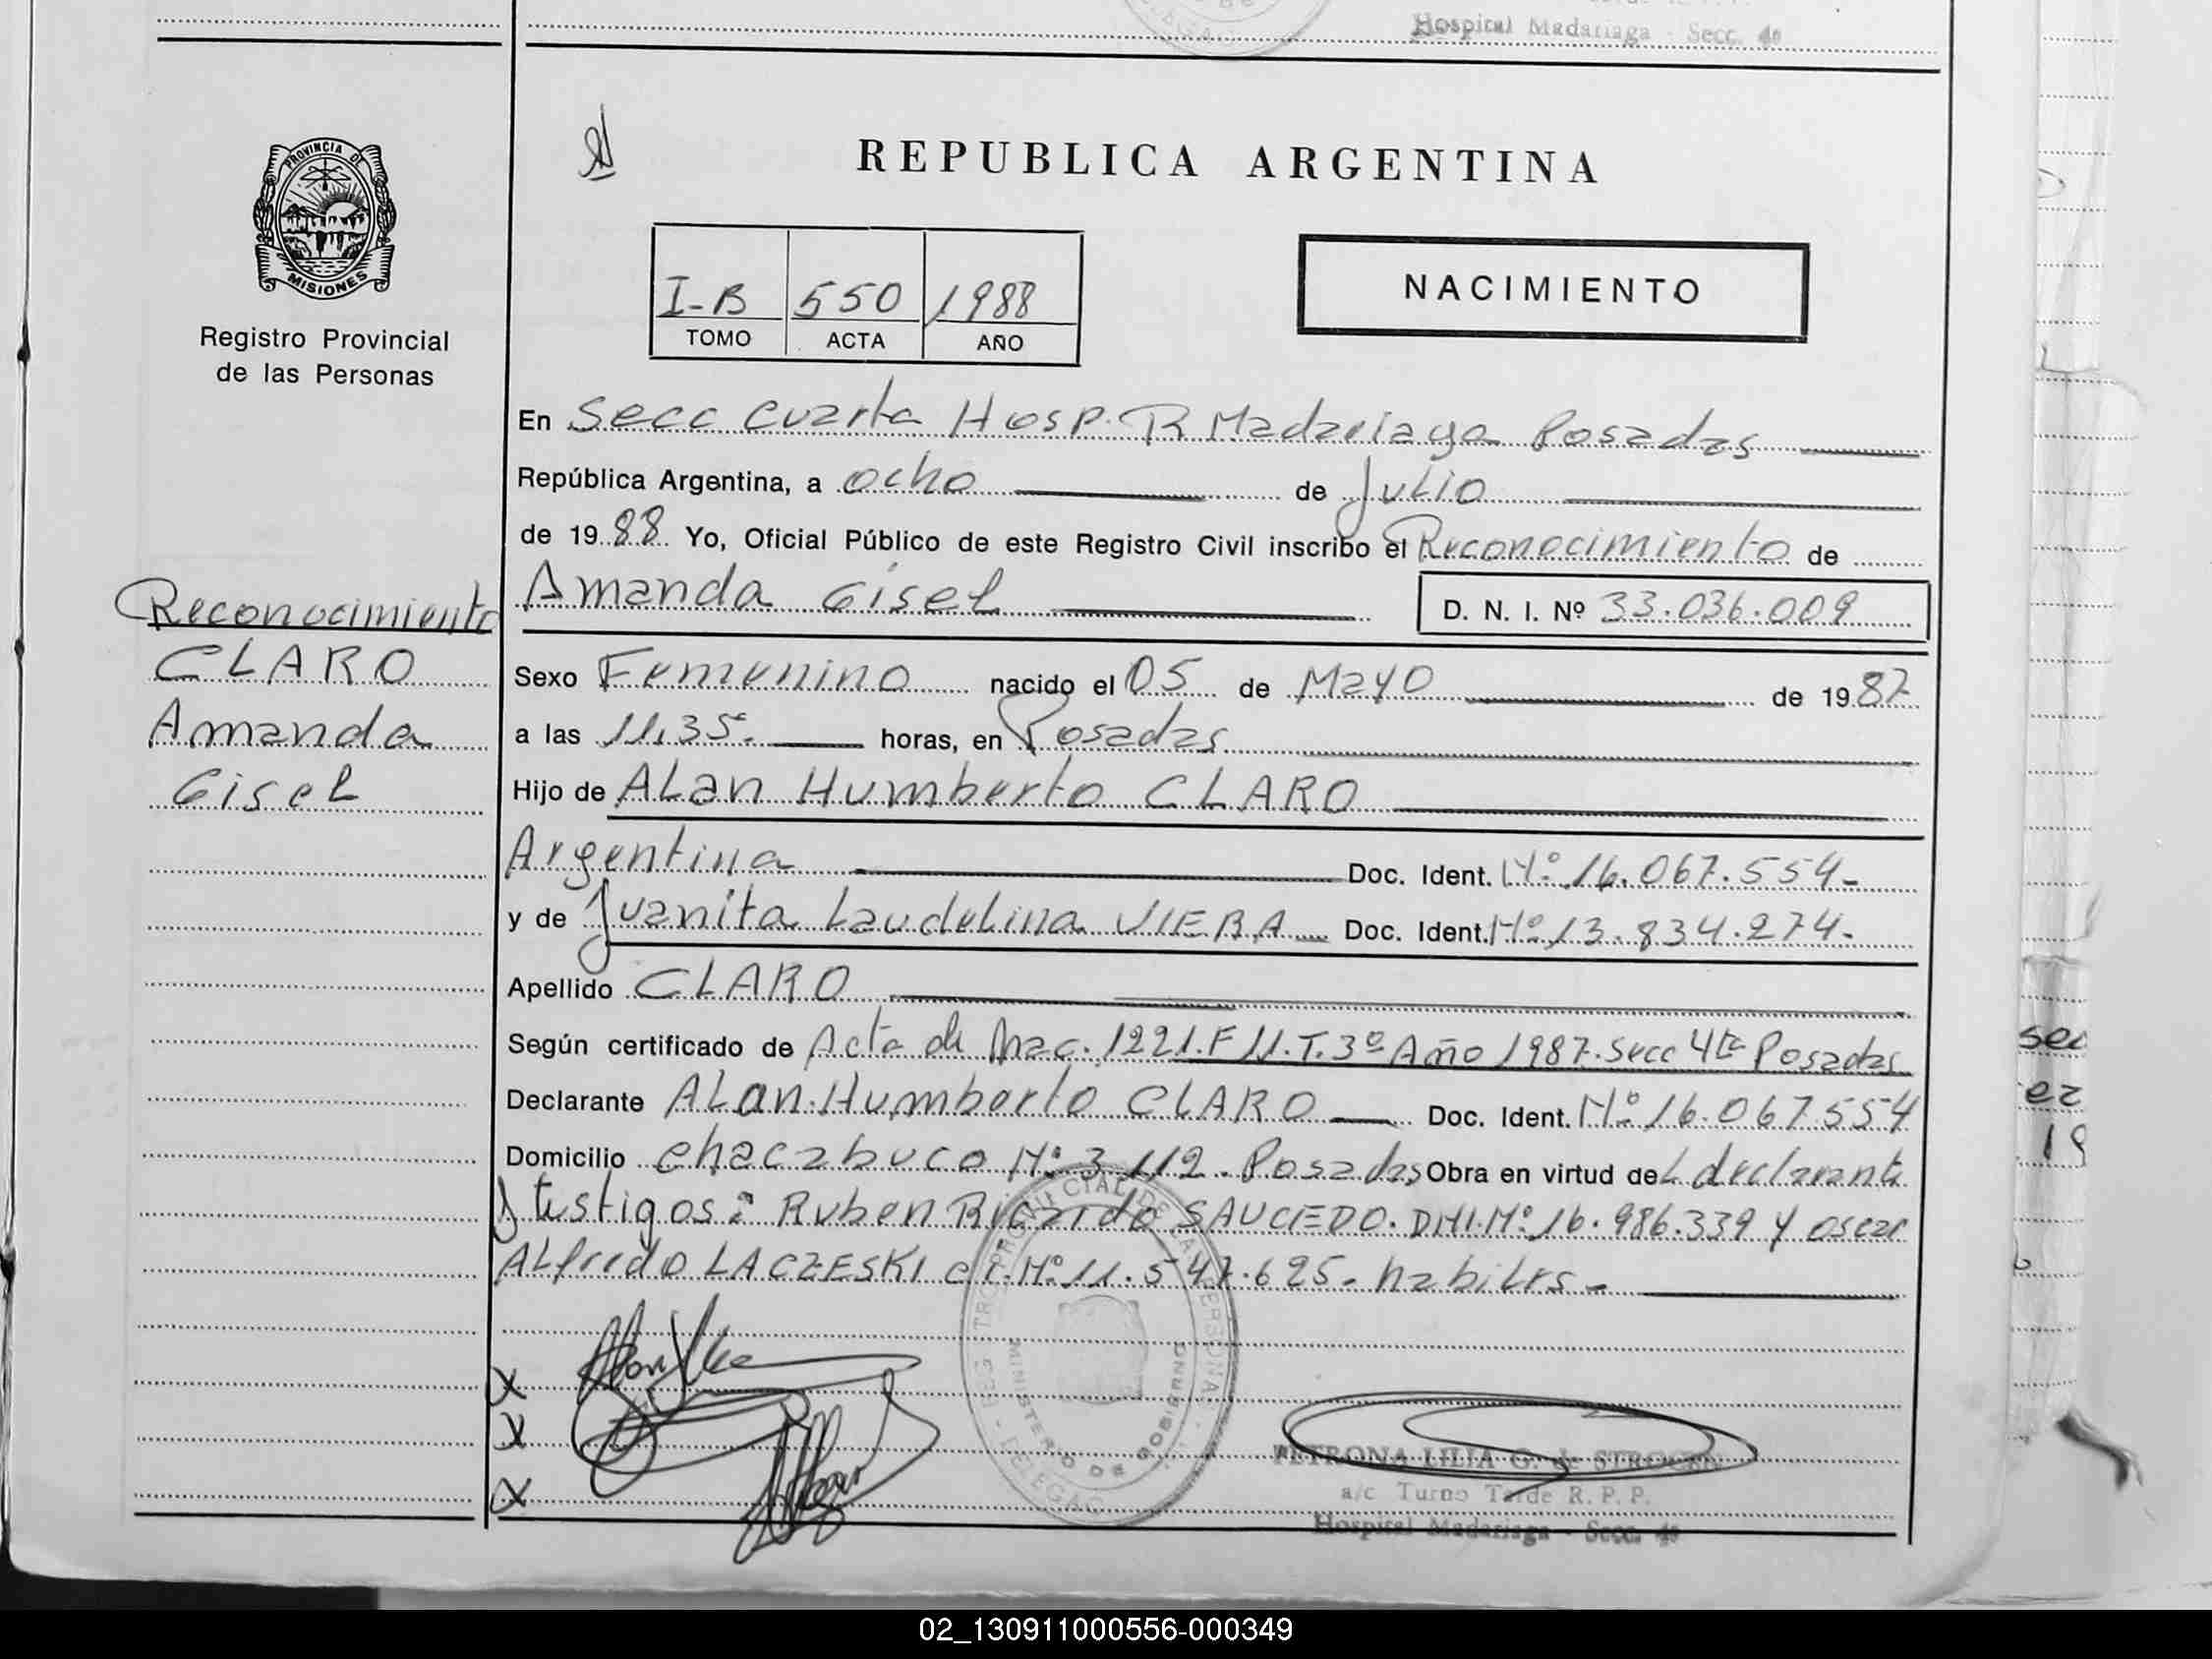 Hospital Madariaga - Secc. 4ª
PROVINCIA DE
MISIONES
Registro Provincial
de las Personas
REPUBLICA ARGENTINA
I-B 550 1988
TOMO ACTA AÑO
NACIMIENTO
En Secc Cuarta Hosp. R Madariaga Posadas
República Argentina, a ocho de Julio
de 1988 Yo, Oficial Público de este Registro Civil inscribo el Reconocimiento de
Amanda Gisel D. N. I. Nº 33.036.009
Reconocimiento
CLARO
Amanda
Gisel
Sexo Femenino nacido el 05 de Mayo de 1987
a las 11,35. horas, en Posadas
Hijo de Alan Humberto CLARO
Argentina Doc. Ident. Nº 16.067.554-
y de Juanita Laudelina VIERA Doc. Ident. Nº 13.834.274-
Apellido CLARO
Según certificado de Acta de Nac. 1221.F 11.T.3º Año 1987. Secc 4ta Posadas
Declarante Alan Humberto CLARO Doc. Ident. Nº 16.067.554
Domicilio Chacabuco Nº 3112. Posadas Obra en virtud de L declarante
testigos: Ruben Ricardo SAUCEDO. DNI.Nº 16.986.339 y Oscar
Alfredo LACZESKI C.I.Nº 11.547.625- habiles-
MINISTERIO DE GOBIERNO
PETRONA LILIA G. de STROCEN
a/c Turno Tarde R. P. P.
Hospital Madariaga - Secc. 4ª
02_130911000556-000349